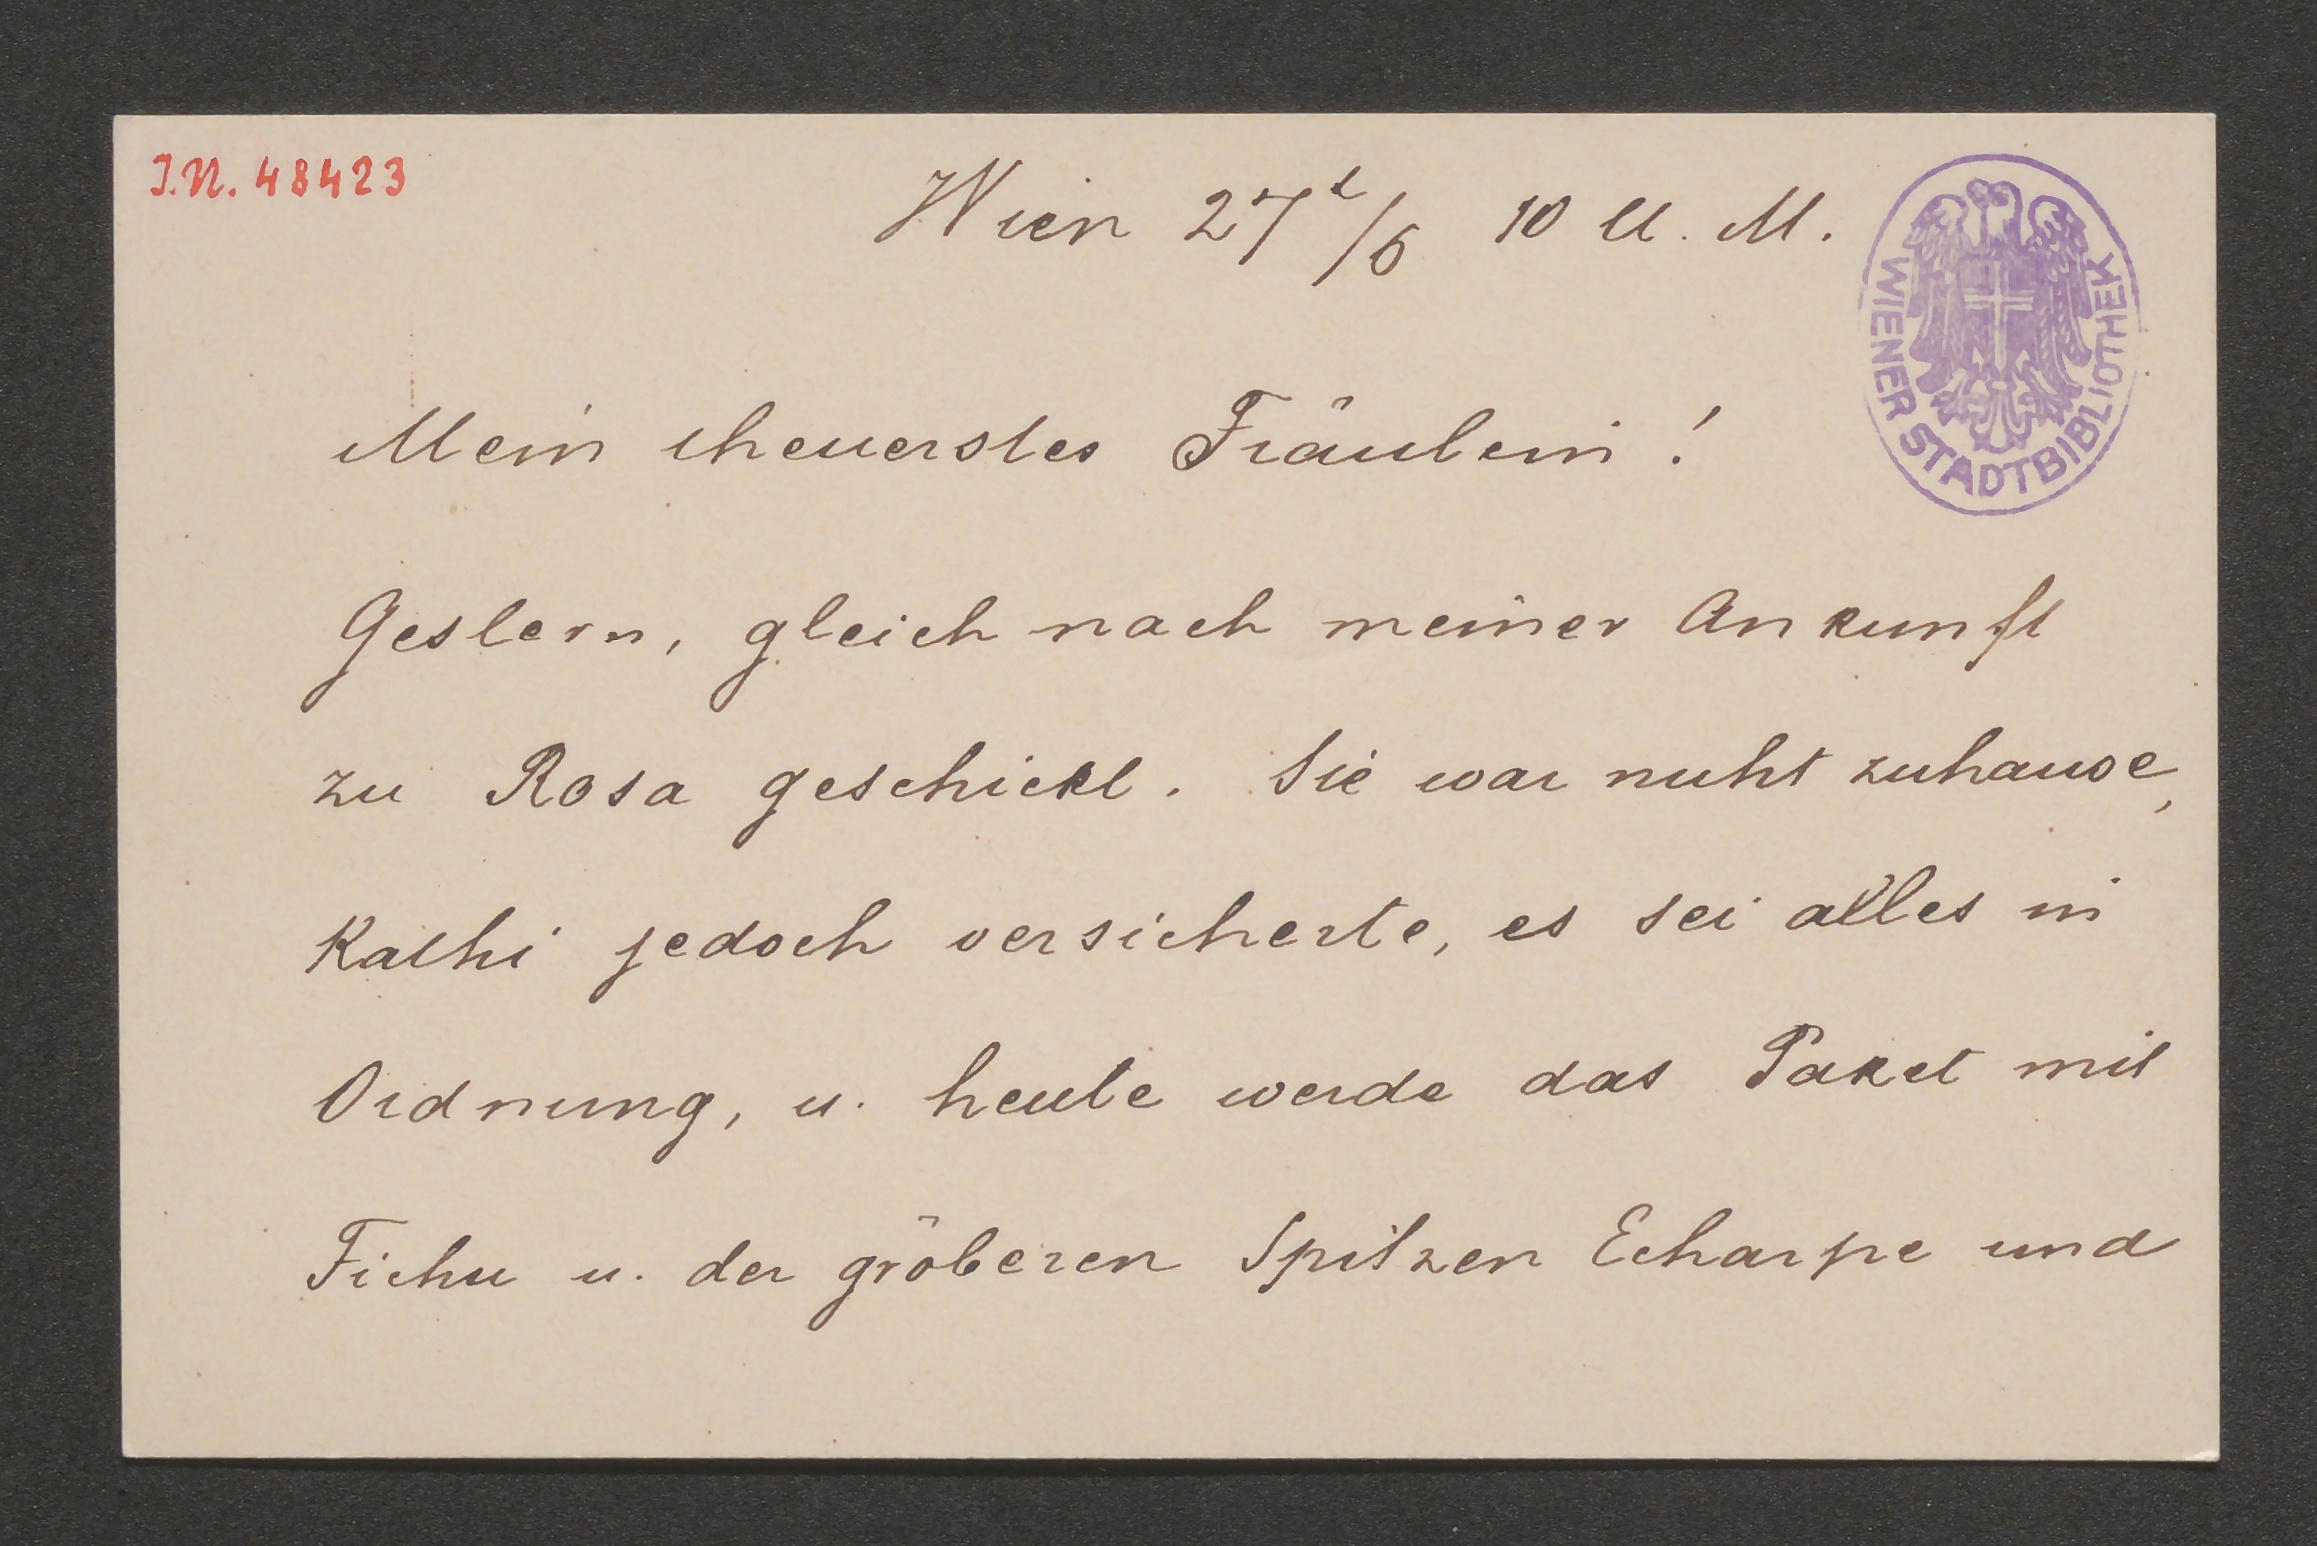 I.N. 48423
Wien 27t/6 10 U. M.
WIENER STADTBIBLIOTHEK
Mein theuerstes Fräulein!
Gestern, gleich nach meiner Ankunft
zu Rosa geschickt. Sie war nicht zuhause,
Kathi jedoch versicherte, es sei alles in
Ordnung, u. heute werde das Paket mit
Fichu u. der gröberen Spitzen Echarpe und